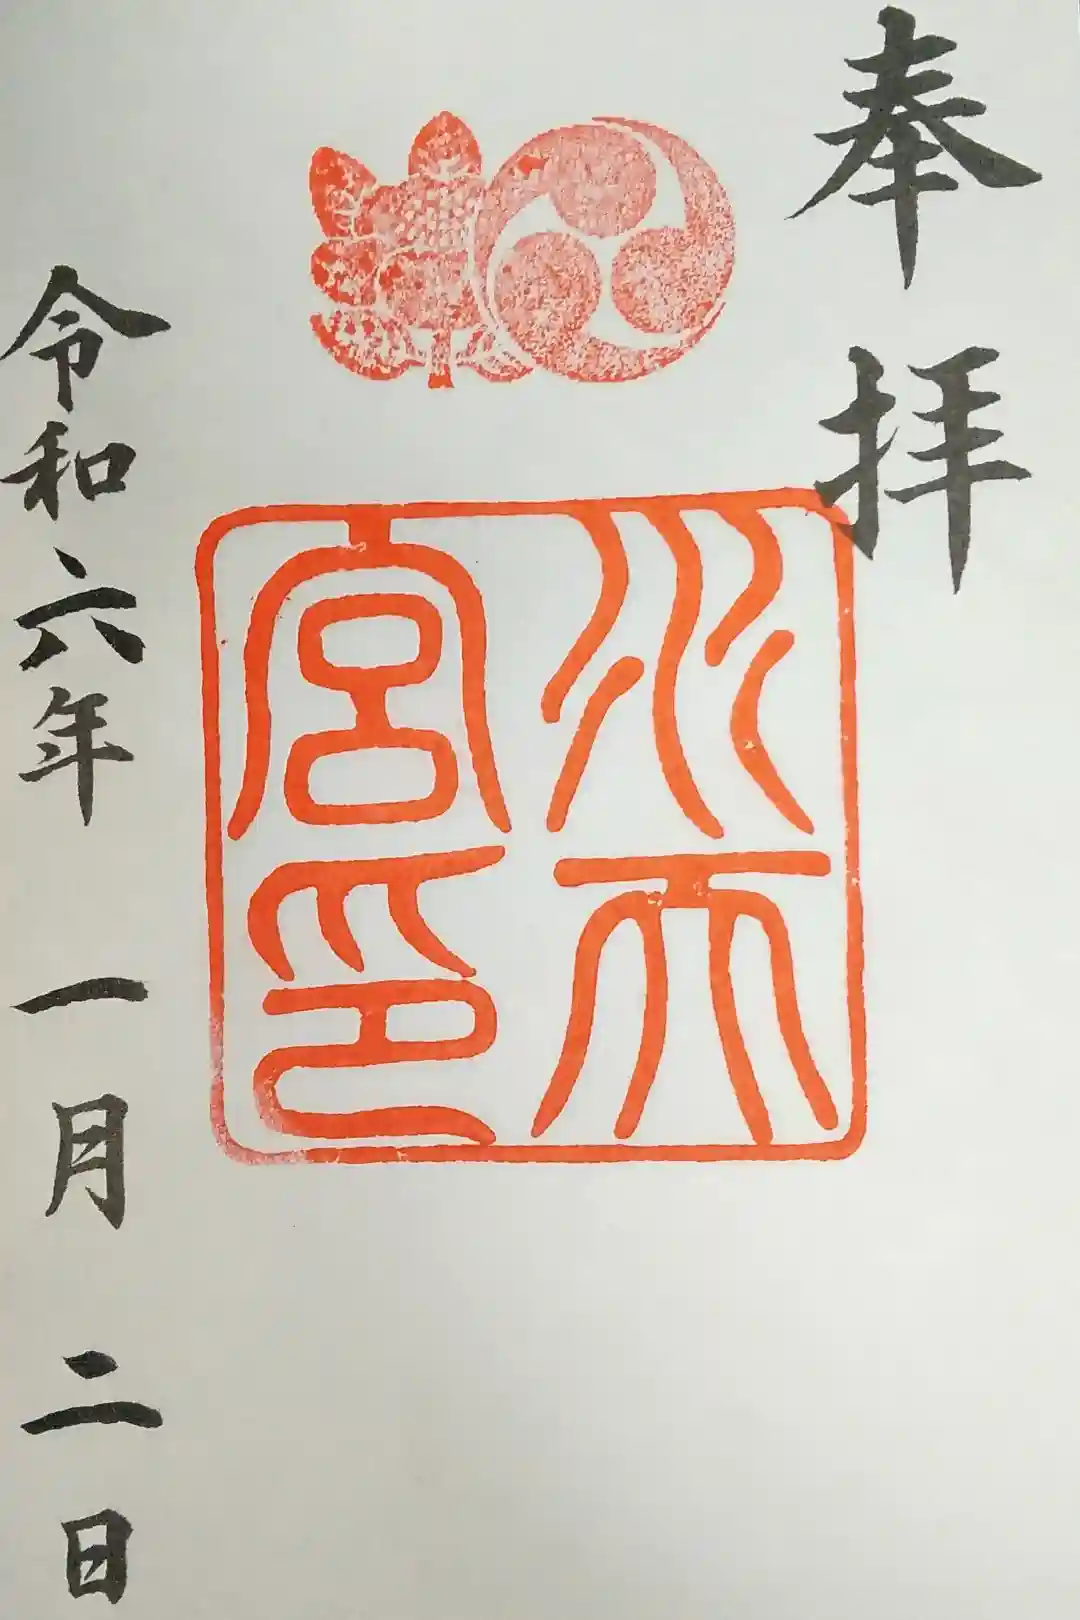 奉拝
水天
宮印
令和六年一月二日